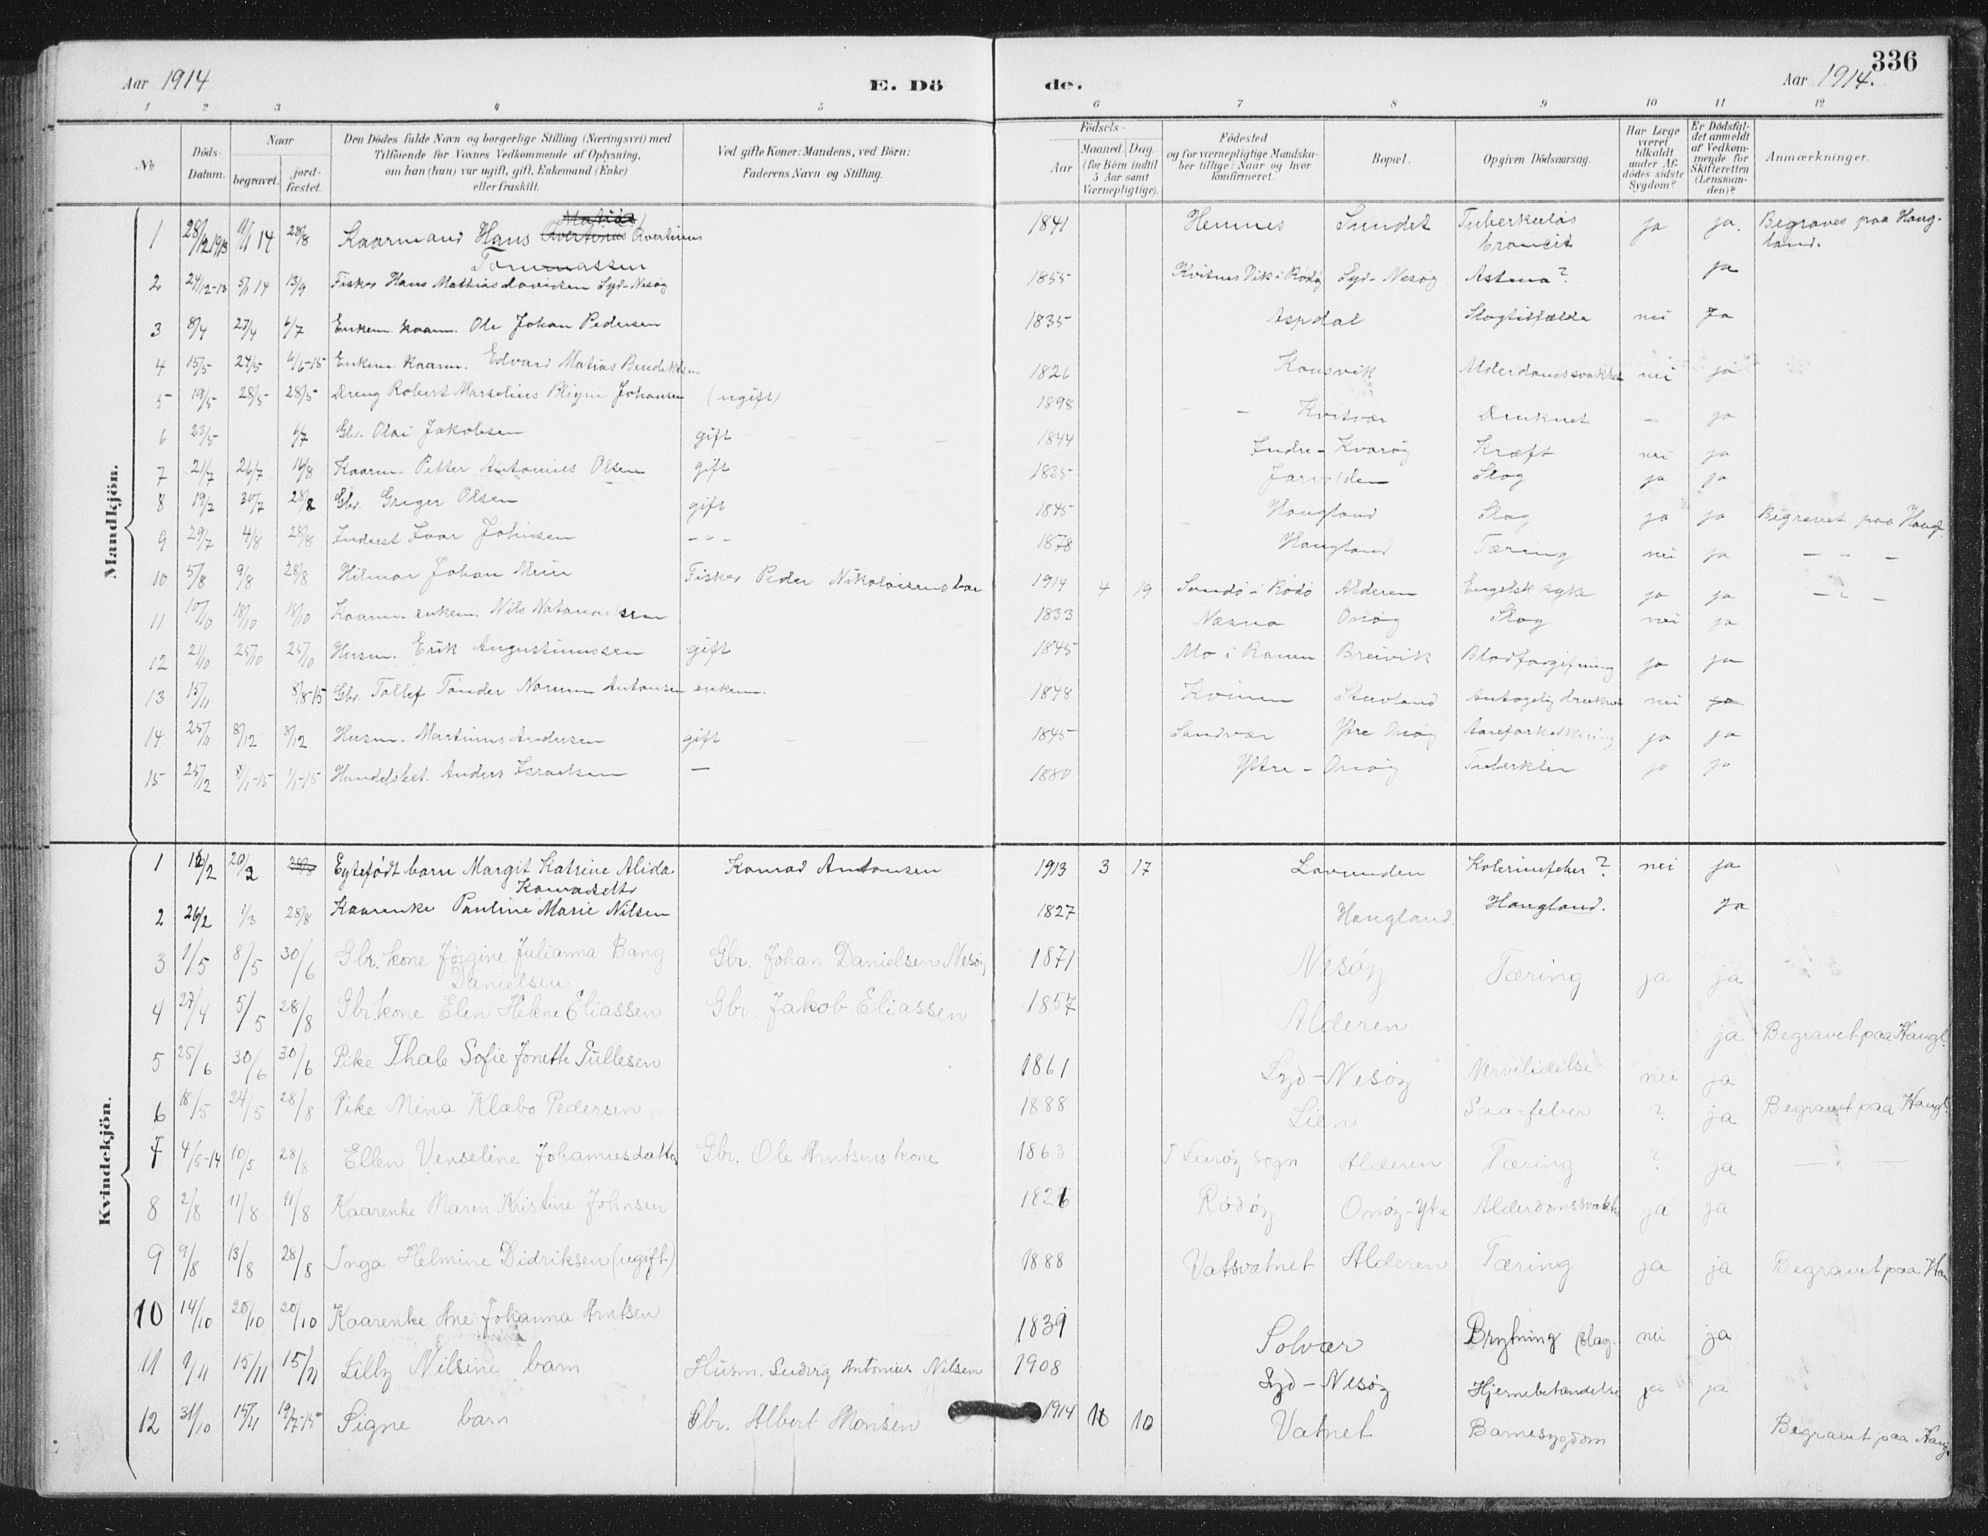 336
Aar 1914
E. Dö
de.
Aar 1914.
1 2 3 4 5 6 7 8 9 10 11 12
No
Döds-Datum.
Naar
begravet.
jord-fæstet.
Den Dödes fulde Navn og borgerlige Stilling (Næringsvei) med
Tilföiende for Voxnes Vedkommende af Oplysning,
om han (hun) var ugift, gift, Enkemand (Enke)
eller fraskilt.
Ved gifte Koner: Mandens, ved Börn:
Faderens Navn og Stilling.
Födsels-
Aar
Maaned. Dag.
(for Börn indtil
5 Aar samt
Værnepligtige).
Födested
og for værnepligtige Mandska-
ber tillige: Naar og hvor
konfirmeret.
Bopæl.
Opgiven Dödsaarsag.
Har Læge
været
tilkaldt
under Af-
dödes sidste
Sygdom?
Er Dödsfal-
det anmeldt
af Vedkom-
mende for
Skifteretten
(Lensman-
den)?
Anmærkninger.
Mandkjön.
1 28/12 1913 11/1 14 28/8 Kaarmand Hans 1841 Hemnes Sundet Tuberkuløs ja ja. Begraves paa Haug-
Tommassen broncit land.
2 24/12-13 5/1 14 13/9 Fisker Hans Mathias Davidsen Syd-Nesøy 1855 Syd-Nesøy Astma? ja
3 8/4 27/4 6/7 Enkem. kaarm. Ole Johan Pedersen 1835 Aspdal Slagtilfælde nei Ja
4 15/5 24/5 6/6-15 Enkem. kaarm. Edvard Matias Benedik 1826 Konsvik Alderdomssvakhet nei ja
5 19/5 28/5 28/5 Dreng Robert Marselius Johansen (ugift) 1898 Kvitvær Druknet - ja
6 23/5 6/7 Gbr. Olai Jakobsen gift 1844 Indre-Kvarøy Kræft nei ja
7 21/7 26/7 16/8 Kaarm. Petter Antonius Olsen gift 1835 Slag ja ja
8 19/7 30/7 28/8 Gbr. Greger Olsen gift 1845 Haugland Slag ja ja Begravet paa Haugl.
9 29/7 4/8 28/8 Inderst Ivar Johnsen - " - 1878 Haugland Tæring nei ja - " -
10 5/8 9/8 28/8 Hilmar Johan Fisker Peder Nikolaisens barn 1914 4 19 Alderen Engelsk syk ja ja - " -
11 10/10 18/10 18/10 Kaarm. enkem. Nils 1833 Næsna Onøy Slag nei ja
12 21/10 25/10 25/10 Husm. Erik Augustinussen gift 1845 Mo i Ranen Breivik Blodforgiftning ja ja
13 15/11 8/8-15 Gbr. Tollef Tönder Normm Antonsen enkem. 1848 Kvinen Stuvland Antagelig druknet nei ja
14 25/11 8/12 8/12 Husm. Martinus Andersen gift 1845 Sandvær Ytre Onøy Aareforkalkning ja ja
15 25/12 8/1-15 1/1-15 Handelsbet. Anders Israelsen — 1880 Ytre-Onøy Tuberkler ja ja
Kvindekjön.
1 12/2 20/2 Egtefødt barn Margit Katrine Alida Konrad Antonsen 1913 3 17 Lovunden Kolerinefeber? nei ja
2 26/2 1/3 28/8 Kaarenke Pauline Marie Nilsen 1827 Haugland. Haugland. Ja
3 1/5 8/5 30/6 Gbr. kone Jørgine Julianna Bang Gbr. Johan Danielsen Nesøy 1871 Nesøy Tæring ja ja
Danielsen
4 27/4 5/5 28/8 Gbr. kone Elen Helene Eliassen Gbr. Jakob Eliassen 1857 Alderen ja Begravet paa Haugl.
5 25/6 30/6 30/6 Pike Thale Sofie Jonette Tullesen 1861 Syd-Nesøy Nervelidelse nei ja
6 18/5 24/5 28/8 Pike Mina Klæbo Pedersen 1888 Lien Saarfeber ? ja Begravet paa Haugl.
7 4/5-14 10/5 28/8 Ellen Venseline Johannesdatter Gbr. Ole Arntsens kone 1863 I Lurøy sogn Alderen Tæring ? ja — " —
8 2/8 11/8 11/8 Kaarenke Maren Kristine Johnsen 1826 Rødøy Onøy-Ytre Alderdomssvakhet ja ja
9 9/8 13/8 28/8 Inga Helmine Didriksen (ugift) 1888 Vatsvatnet Alderen Tæring ja ja Begravet paa Hau
10 14/10 20/10 20/10 Kaarenke Ane Johanna Arntsen 1839 Solvær Brytning (slag- nei ja
11 9/11 15/11 15/11 Lilly Nilsine barn Husm. Ludvig Antonius Nilsen 1908 Syd-Nesøy Hjernebetændelse ja ja
12 31/10 15/11 19/7-15 Signe barn Gbr. Albert Monsen 1914 10 10 Vatnet Barnesygdom Begravet paa Haug.